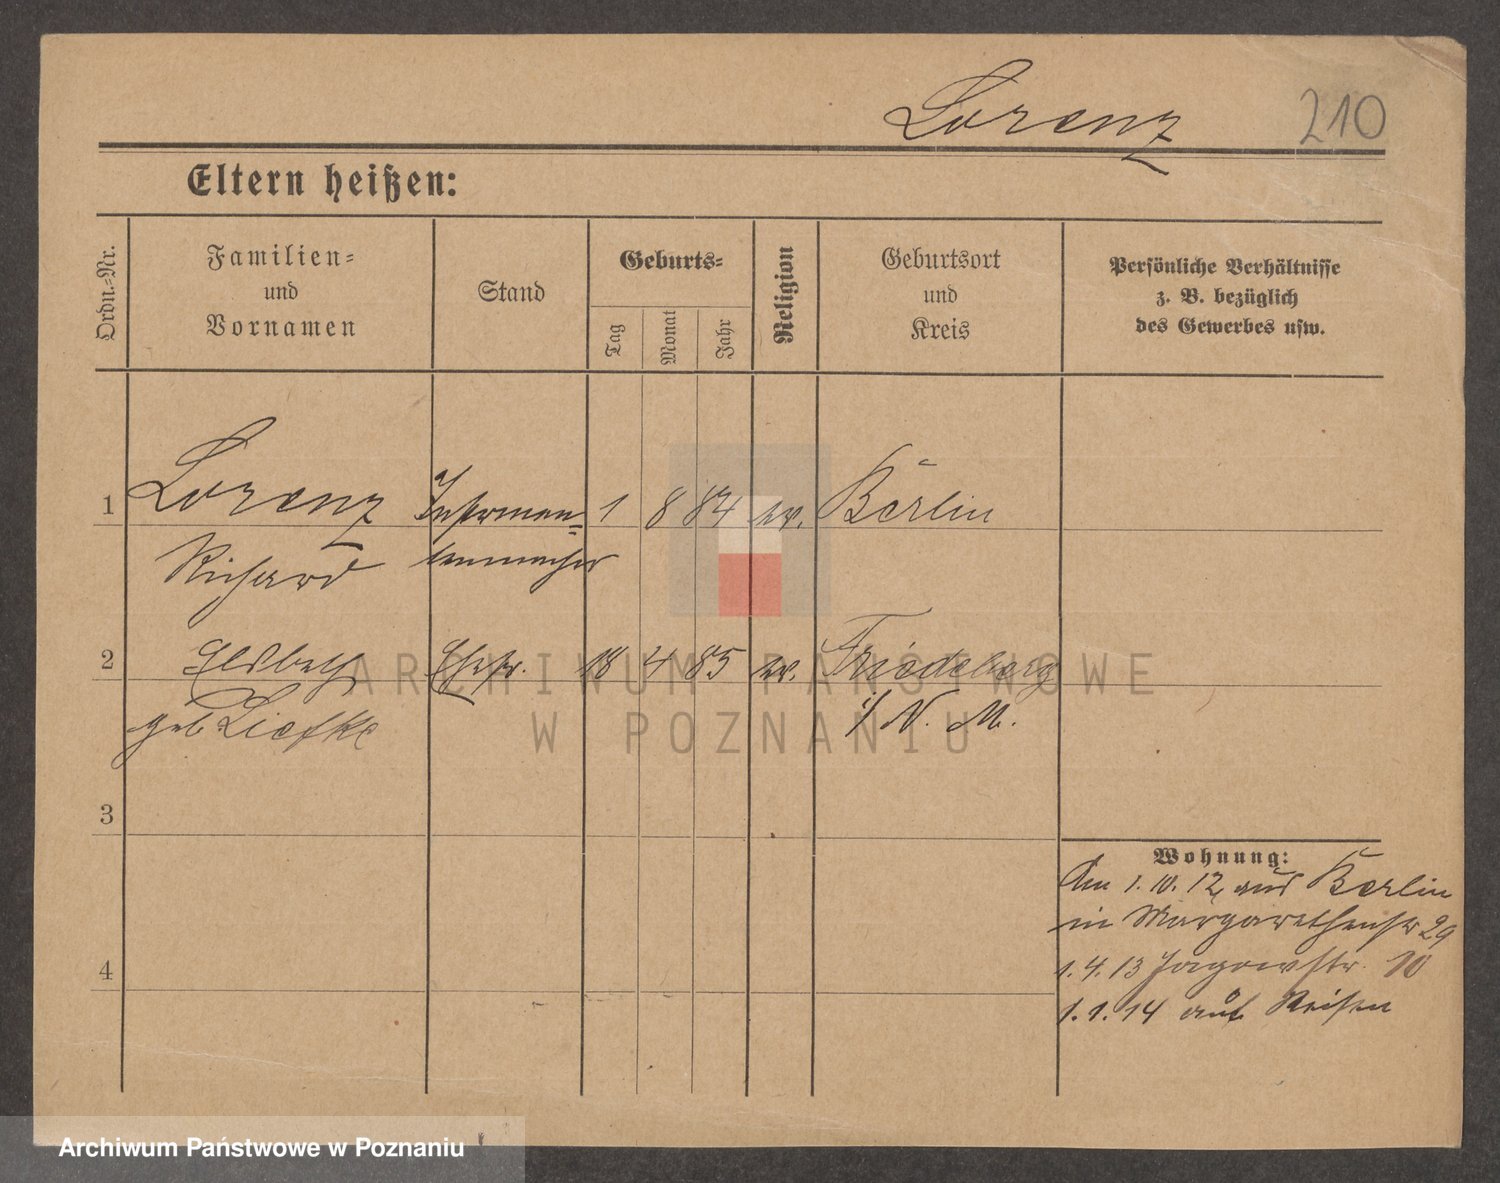 Lorenz 210
Eltern heißen:
Ordn.-Nr. Familien- und Vornamen Stand Geburts- Tag Monat Jahr Religion Geburtsort und Kreis Persönliche Verhältnisse z. B. bezüglich des Gewerbes usw.
1 Lorenz Instrumen= 1 8 84 ev. Berlin
Richard tenmacher
2 Elsbeth Ehefr. 18 4 85 ev. Friedeberg
geb. Liefke i/ N. M.
3
4
Wohnung:
Am 1. 10. 12 aus Berlin
in Margarethenstr 29
1. 4. 13 Jagowstr. 10
1. 1. 14 auf Reisen
ARCHIWUM PAŃSTWOWE
W POZNANIU
Archiwum Państwowe w Poznaniu